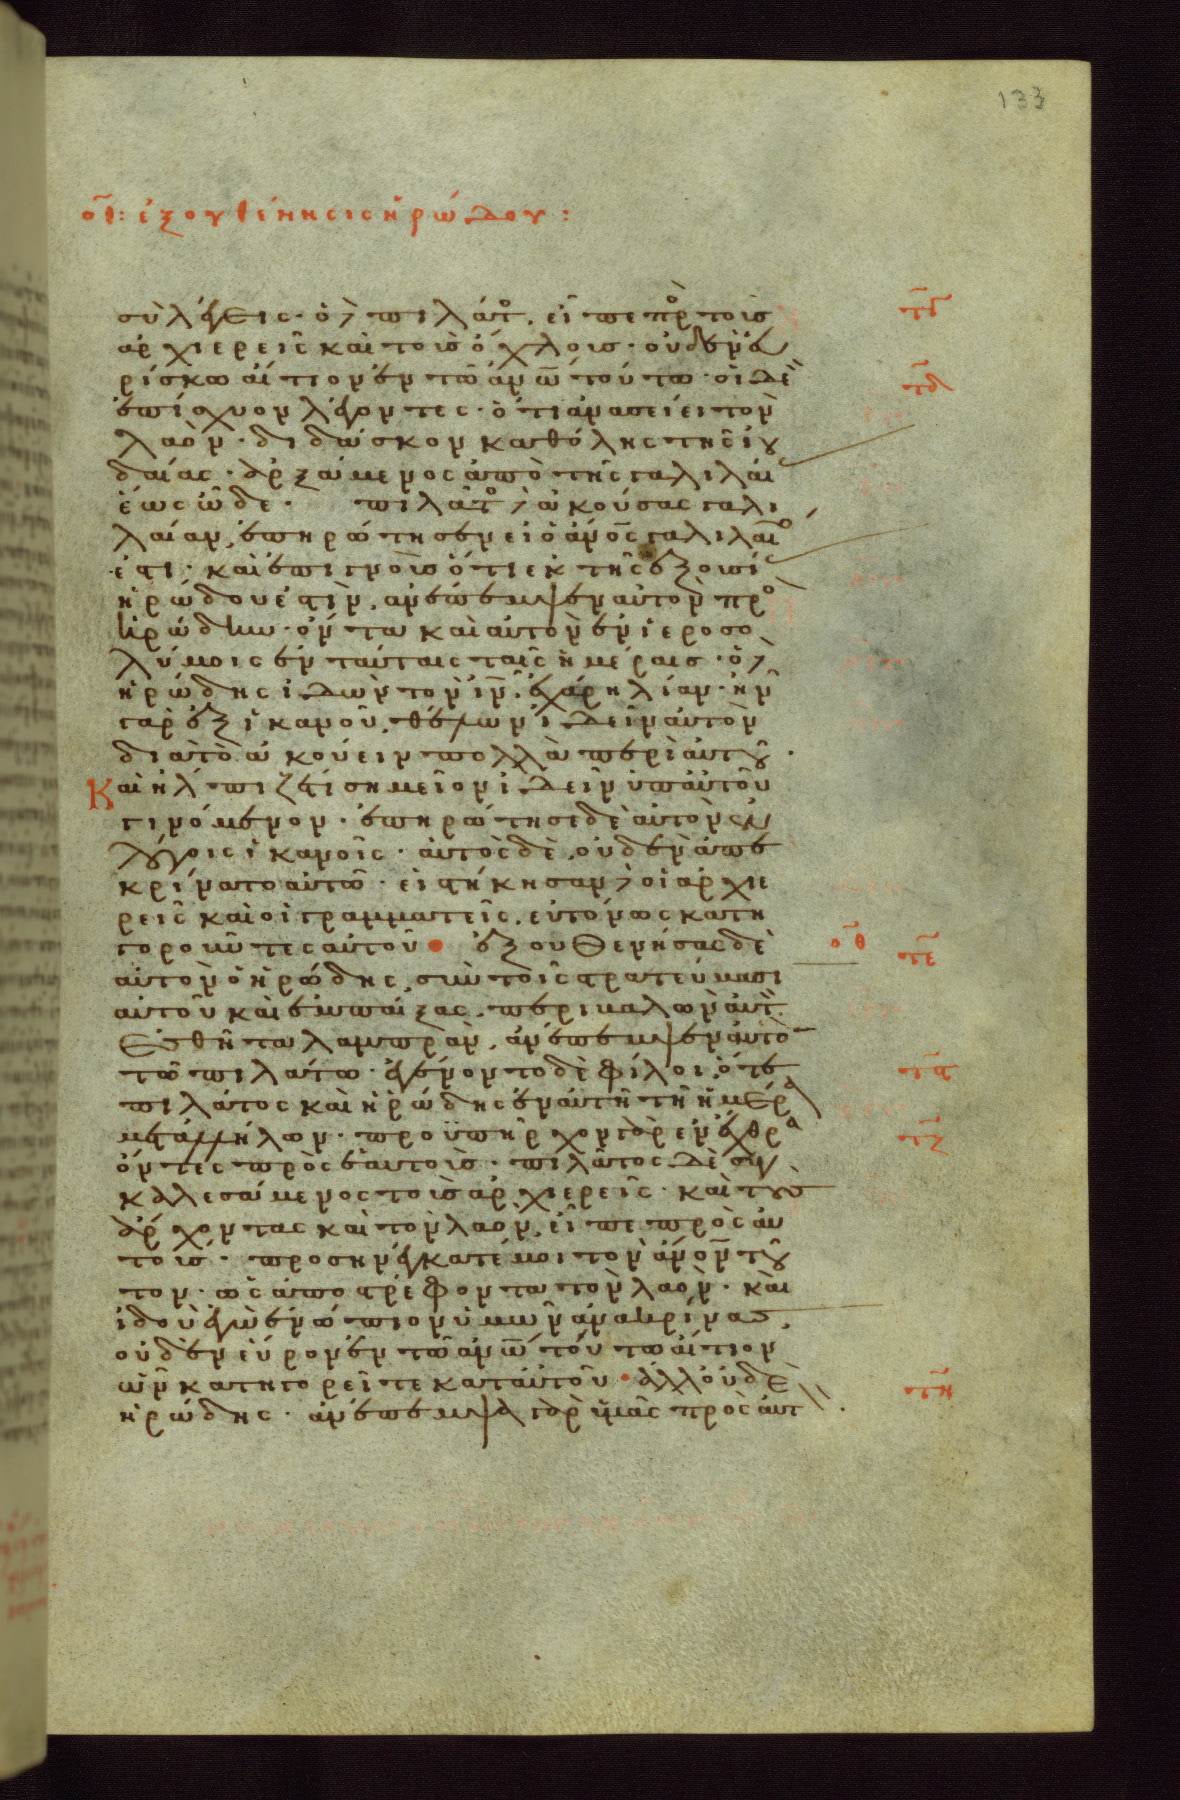 133
οθ: ἐξουθένησις ἡρώδου:
σὺ λέγεις· ὁ δὲ πιλάτος, εἶπε πρὸς τοὺς
ἀρχιερεῖς καὶ τοὺς ὄχλους· οὐδὲν εὑ
ρίσκω αἴτιον ἐν τῷ ἀνω τούτω· οἱ δὲ
ἐπίσχυον λέγοντες· ὅτι ἀνασείει τὸν
λαὸν· διδάσκον καθόλης τῆς ἰου
δαίας· ἀρξάμενος ἀπὸ τῆς γαλιλαί
ἕως ὧδε· πιλάτος δὲ ἀκούσας γαλι
λαίαν, ἐπηρώτησεν εἰ ὁ ἀνος γαλιλαῖο
ἐστι· καὶ ἐπιγνοὺς ὅτι ἐκ τῆς ἐξουσί
ἡρώδου ἐστὶν, ἀνέπεμψεν αὐτὸν προ
ἡρώδην· ὄντα καὶ αὐτὸν ἐν ἱεροσο
λύμοις ἐν ταύταις ταῖς ἡμέραις· ὁ δὲ
ἡρώδης ἰδὼν τὸν ιν, ἐχάρη λίαν· ἦν
γὰρ ἐξ ἱκανοῦ, θέλων ἰδεῖν αὐτὸν
διατὸ ἀκούειν πολλὰ περὶ αὐτοῦ·
Καὶ ἤλπιζέ τι σημεῖον ἰδεῖν ὑπ αὐτοῦ
γινόμενον· ἐπηρώτησε δὲ αὐτὸν ἐν
λόγοις ἱκανοῖς· αὐτὸς δὲ, οὐδὲν ἀπε
κρίνατο αὐτῶ· εἱστήκησαν δὲ οἱ ἀρχιε
ρεῖς καὶ οἱ γραμματεῖς, εὐτόνως κατη
γοροῦντες αὐτοῦ· ἐξουθενήσας δὲ
αὐτὸν ὁ ἡρώδης, σὺν τοῖς στρατεύμασι
αὐτοῦ καὶ ἐμπαίξας, περιβαλὼν αὐτ
ἐσθῆτα λαμπρὰν, ἀνέπεμψεν αὐτὸ
τῶ πιλάτω· ἐγένοντο δὲ φίλοι, ὅτε
πιλάτος καὶ ἡρώδης ἐν αὐτῆ τῆ ἡμέρα
μετ ἀλλήλων· προϋπῆρχον γὰρ ἐν ἔχθρα
ὄντες πρὸς ἑαυτούς· πιλάτος δὲ συγ
καλεσάμενος τοὺς ἀρχιερεῖς· καὶ τοὺς
ἄρχοντας καὶ τὸν λαὸν, εἶπε πρὸς αὐ
τούς· προσηνέγκατέ μοι τὸν ἀνον τοῦ
τον· ὡς ἀποστρέφοντα τὸν λαὸν· καὶ
ἰδοὺ ἐγὼ ἐνώπιον ὑμῶν ἀνακρίνας,
οὐδὲν εὗρον ἐν τῶ ἀνω τούτω αἴτιον
ὧν κατηγορεῖτε κατ αὐτοῦ· ἀλλ οὐδὲ
ἡρώδης· ἀνέπεμψα γὰρ ὑμᾶς πρὸς αὐτ
τγ
τδ
οθ
τε
τϛ
τζ
τη